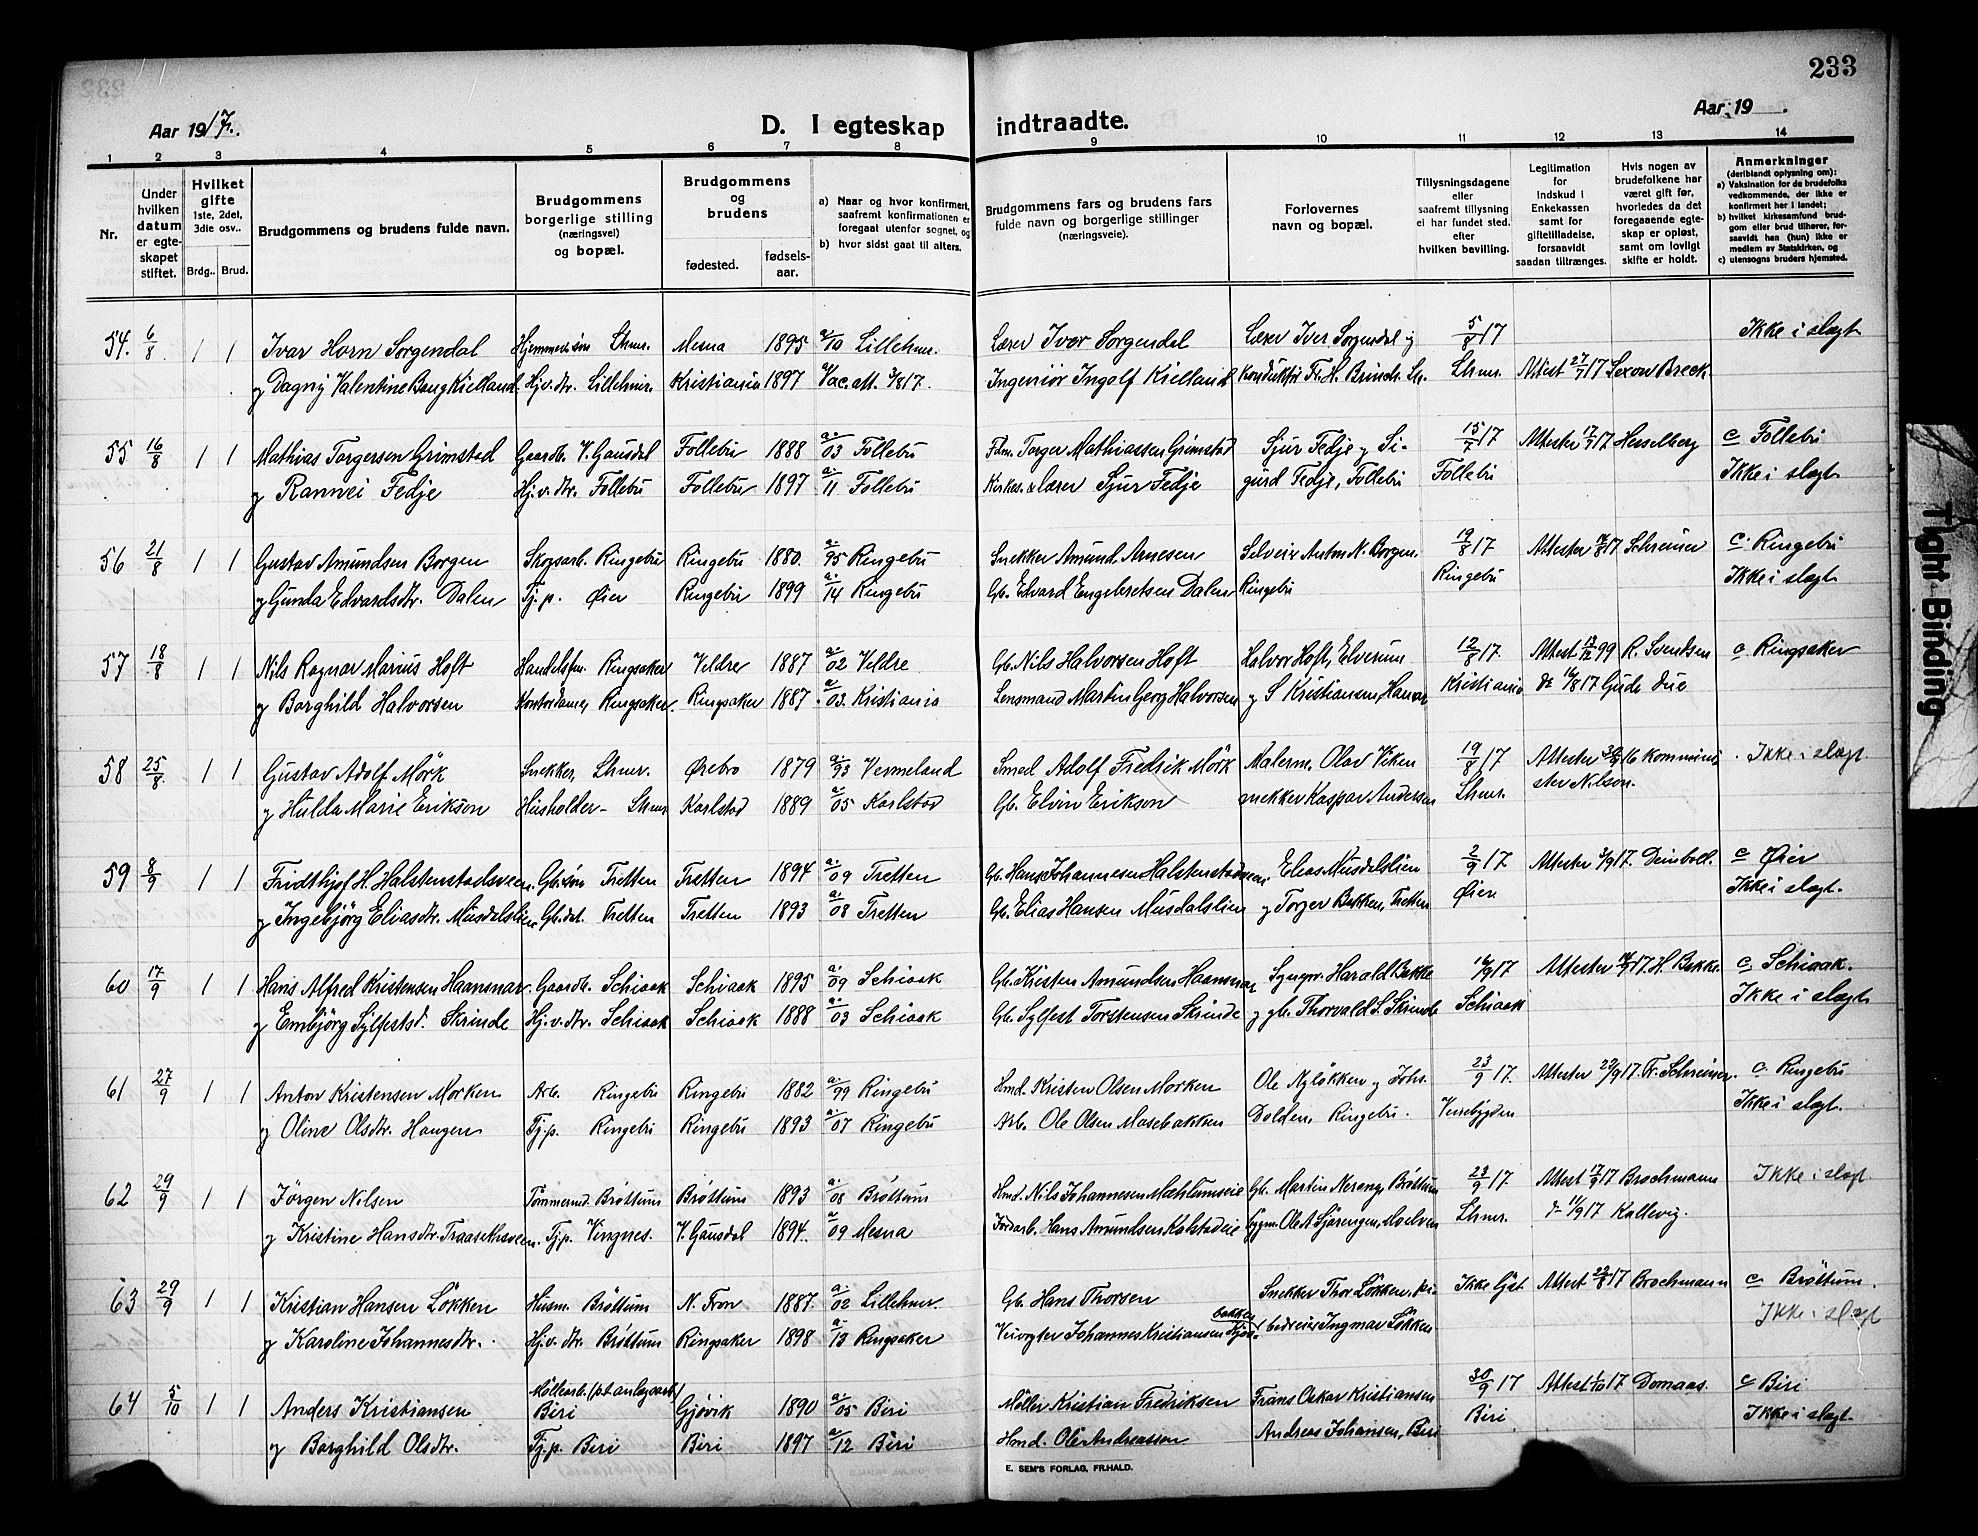 233
Aar 1917.
D. I egteskap indtraadte.
Aar 19
1 2 3 4 5 6 7 8 9 10 11 12 13 14
Nr.
Under hvilken datum er egteskapet stiftet.
Hvilket gifte 1ste, 2det, 3die osv..
Brdg.. Brud.
Brudgommens og brudens fulde navn.
Brudgommens borgerlige stilling (næringsvei) og bopæl.
Brudgommens og brudens
fødested. fødsels-aar.
a) Naar og hvor konfirmert, saafremt konfirmationen er foregaat utenfor sognet, og
b) hvor sidst gaat til alters.
Brudgommens fars og brudens fars fulde navn og borgerlige stillinger (næringsveie).
Forlovernes navn og bopæl.
Tillysningsdagene eller saafremt tillysning ei har fundet sted, efter hvilken bevilling.
Legitimation for Indskud i Enkekassen samt for giftetilladelse, forsaavidt saadan tiltrænges.
Hvis nogen av brudefolkene har været gift før, hvorledes da det foregaaende egteskap er opløst, samt om lovligt skifte er holdt.
Anmerkninger (deriblandt oplysning om):
a) Vaksination for de brudefolks vedkommende, der ikke er konfirmert her i landet;
b) hvilket kirkesamfund brudgom eller brud tilhører, forsaavidt han (hun) ikke er medlem av Statskirken, og
c) utensogns bruders hjemsted.
54. 6/8 1 1 Ivar Horn Sorgendal Hjemmev. søn Lhmr. Mesna 1895 a/10 Lillehmr. Lærer Ivar Sorgendal Lærer Iver Sorgendal og 5/8 17 Ikke i slegt
og Dagny Valentine Bang Kielland Hj.v.dtr. Lillehmr. Kristiania 1897 Vac.att. 3/8 17. Ingeniør Ingolf Kielland Konduktør Fr. H. Brinch. Lh. Lhmr. Attest 27/7 17 Sexow Breck
55 16/8 1 1 Mathias Torgersen Grimstad Gaardb. V. Gausdal Follebu 1888 a/03 Follebu Fdm. Torger Mathiassen Grimstad Sjur Fedje og Si- 15/7 17 Attester 17/7 17 Hesselberg c Follebu
og Rannei Fedje Hj.v.dtr. Follebu Follebu 1897 a/11 Follebu Kirkes. & lærer Sjur Fedje gurd Fedje, Follebu Follebu Ikke i slegt
56 21/8 1 1 Gustav Amundsen Borgen Skogsarb. Ringebu Ringebu 1880. a/95 Ringebu Snekker Amund Arnesen Selveier Anton N. Borgen 19/8 17 Attester 17 Schreiner c. Ringebu
og Gunda Edvardsdtr. Dalen Tj.p. Øier Ringebu 1899 a/14 Ringebu Gb. Edvard Engebretsen Dalen Ringebu Ringebu Ikke i slegt
57 18/8 1 1 Nils Ragnar Marius Hoft Handelsfm. Ringsaker Veldre 1887 a/02 Veldre Gb. Nils Halvorsen Hoft Halvor Hoft, Elverum 12/8 17. Attest 99 R. Svendsen c Ringsaker
og Borghild Halvorsen Kontordame, Ringsaker. Ringsaker 1887 a/03. Kristiania Lensmand Martin Georg Halvorsen og S Kristiansen, Hamar Kristiania 17 Gude Due
58 25/8 1 1 Gustav Adolf Mörk Snekker, Lhmr. Ørebro 1879 a/93 Vermeland Smed Adolf Fredrik Mörk Malerm. Olav Viken 19/8 17 Attester 16 Kommini- Ikke i slegt
og Hulda Marie Erikson Husholder- Lhmr Karlstad 1889 a/05 Karlstad Gb. Elvin Erikson snekker Kaspar Andersen Lhmr. ster Nilson.
59 8/9 1 1 Fridthjof H. Halstenstadsveen. Gb.søn Tretten Tretten 1894 a/09 Tretten Gb. Hans Johannesen Halstenstadsveen. Elias Musdalslien 2/9 17 Attester 3/9 17. Deinboll. c Øier
og Ingebjörg Eliasdtr. Musdalslien Gb.dat. Tretten Tretten 1893 a/08 Tretten Gb. Elias Hansen Musdalslien og Torger Bakken, Tretten Øier Ikke i slegt.
60 17/9 1 1 Hans Alfred Kristensen Haansnar. Gaardb. Schiaak Schiaak 1895 a/09 Schiaak Gb. Kristen Amundsen Haansnar Harald Bakke 16/9 17 Attester 17. H. Bakke. c Schiaak.
og Embjörg Sylfestsd. Skrinde Hj.v.dtr. Schiaak Schiaak 1888 a/03 Schiaak Gb. Sylfest Torstensen Skrinde og gb. Thorvald S. Skrinde Schiaak Ikke i slegt
61 27/9 1 1 Anton Kristensen Morken Arb. Ringebu Ringebu 1882 a/99 Ringebu Hmd. Kristen Olsen Morken Ole Nyløkken og Johs. 23/9 17. Attester 23/9 17. Fr. Schreiner. c. Ringebu
og Oline Olsdtr. Haugen Tj.p. Ringebu Ringebu 1893 a/07 Ringebu Arb. Ole Olsen Mosebakken Dolden, Ringebu. Venebygden Ikke i slegt.
62 29/9 1 1 Jörgen Nilsen Tömmermd. Bröttum Bröttum 1893 a/08 Bröttum Hmd. Nils Johannesen Mæhlumseie Gb. Martin Nereng, Bröttum 23/9 17 Attest 17/9 17 Brochmann Ikke i slegt
og Kristine Hansdtr. Traasethsveen. Tj.p. Vingnes. V. Gausdal 1894. a/09 Mesna Jordarb. Hans Amundsen Kalstadeie bygm. Ole A Sjørengen, Moelven Lhmr. d- 11/9 17 Kallevig.
63 29/9 1 1 Kristian Hansen Lökken Husm. Bröttum N. Fron 1887. a/02 Lillehmr. Gb. Hans Thorsen Snekker Thor Lökken, Ikke lyst Attest 22/8 17 Brochmann c. Bröttum.
og Karoline Johannesdtr. Hj.v.dtr. Bröttum Ringsaker 1898 a/13 Ringsaker Veivogter Johannes Kristiansen bakken Ingmar Lökken Ikke i slegt
64 5/10 1 1 Anders Kristiansen Möllearb. (p.t. anlegsarb) Biri Gjövik 1890 a/05 Biri Möller Kristian Fredriksen Frans Oskar Kristiansen 30/9 17 Attest 1/10 17 Domaas. c Biri
og Borghild Olsdtr. Tj.p. Biri Biri 1897 a/12 Biri Hmd. Ole Andreassen Andreas Johansen, Biri Biri Ikke i slegt.
E. SEM'S FORLAG, FR.HALD.
Tight Binding